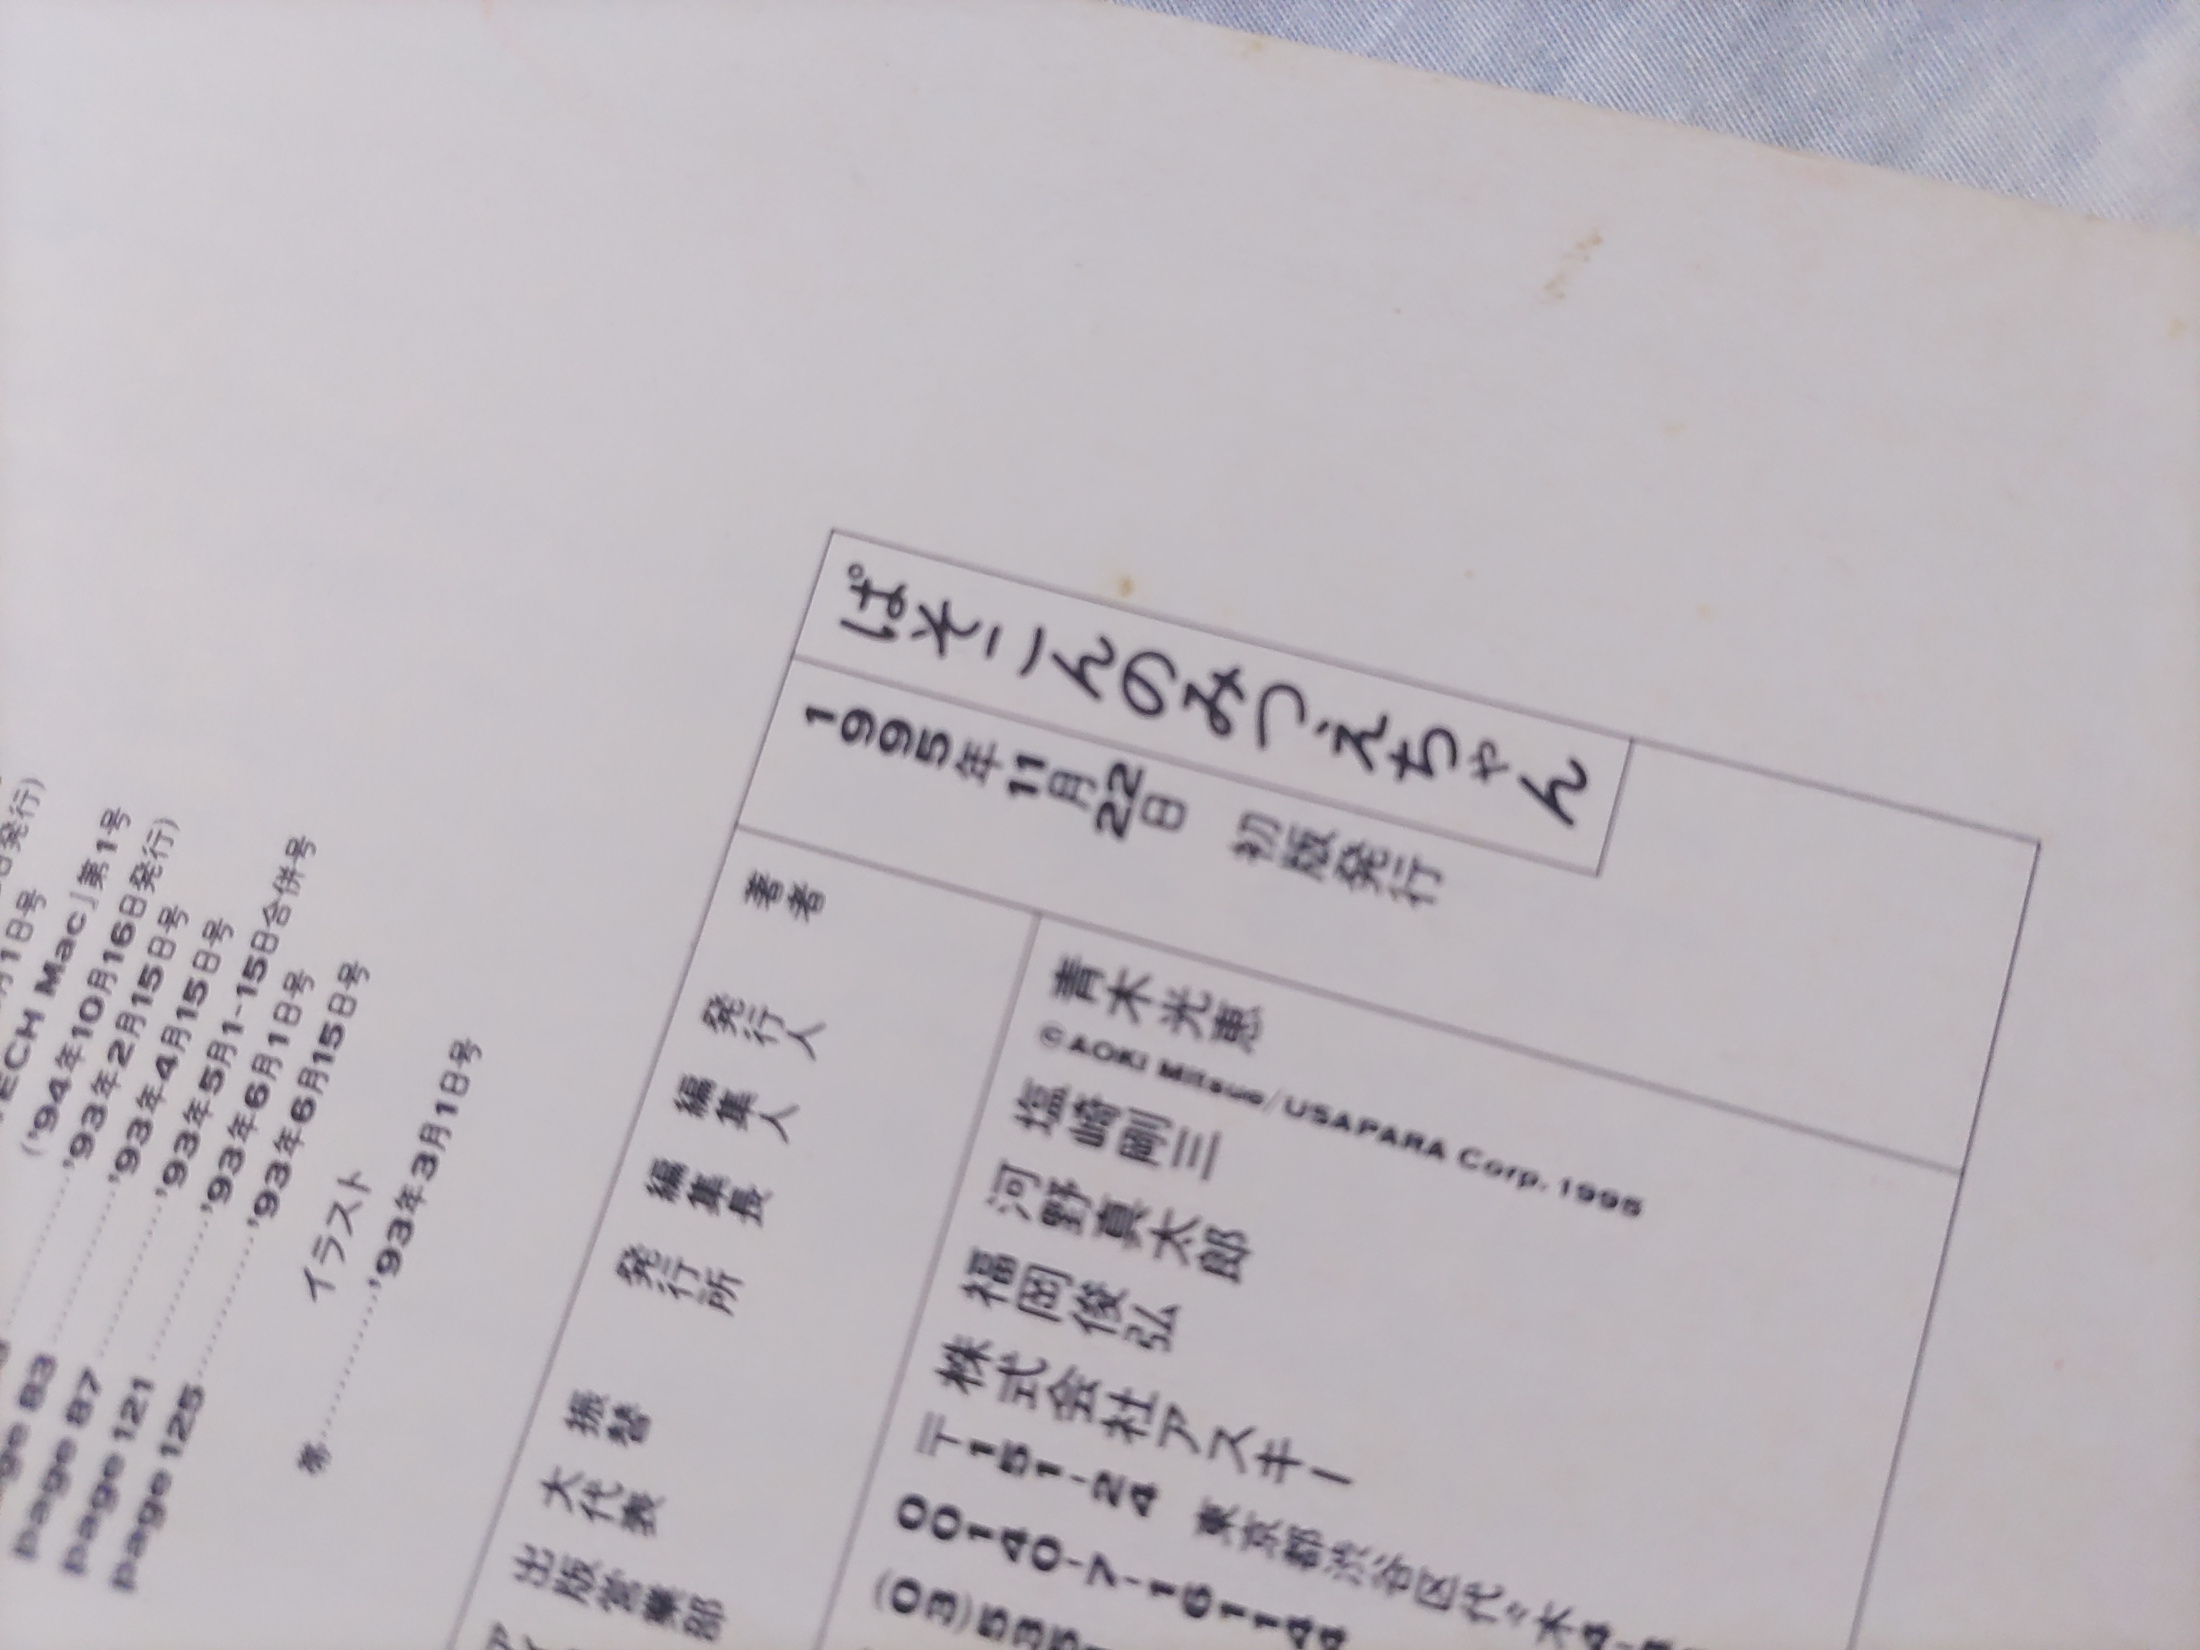 ぱそこんのみつえちゃん
1995年11月22日 初版発行
著者 青木光恵
©AOKI Mitsue/USAPARA Corp. 1995
発行人 塩崎剛三
編集人 河野真太郎
編集長 福岡俊弘
発行所 株式会社アスキー
〒151-24 東京都渋谷区代々木4-
振替 00140-7-161144
大代表 (03)535
出版営業部
発行)
月1日号
TECH Mac」第1号
('94年10月16日発行)
page 83 '93年2月15日号
page 87 '93年4月15日号
page 121 '93年5月1-15日合併号
page 125 '93年6月1日号
'93年6月15日号
イラスト
帯 '93年3月1日号